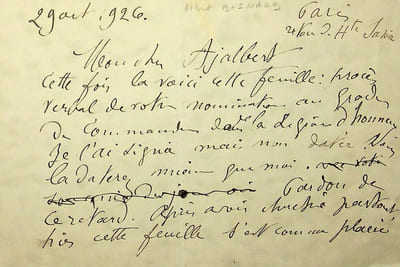 29 oct 1926.
ALBERT BESNARD
Paris
Mon cher Ajalbert
Cette fois la voici cette feuille: procès
verbal de votre nomination au grade
De Commandeur dans la Légion d'honneur
Je l'ai signé mais non daté. Vous
la daterez mieux que moi.
Pardon de
ce retard. Après avoir cherché partout
cette feuille s'est comme placée